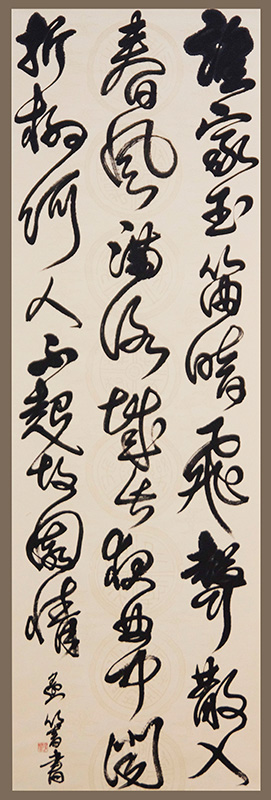 誰家玉笛暗飛聲散入
春風滿洛城此夜曲中聞
折柳何人不起故園情
書